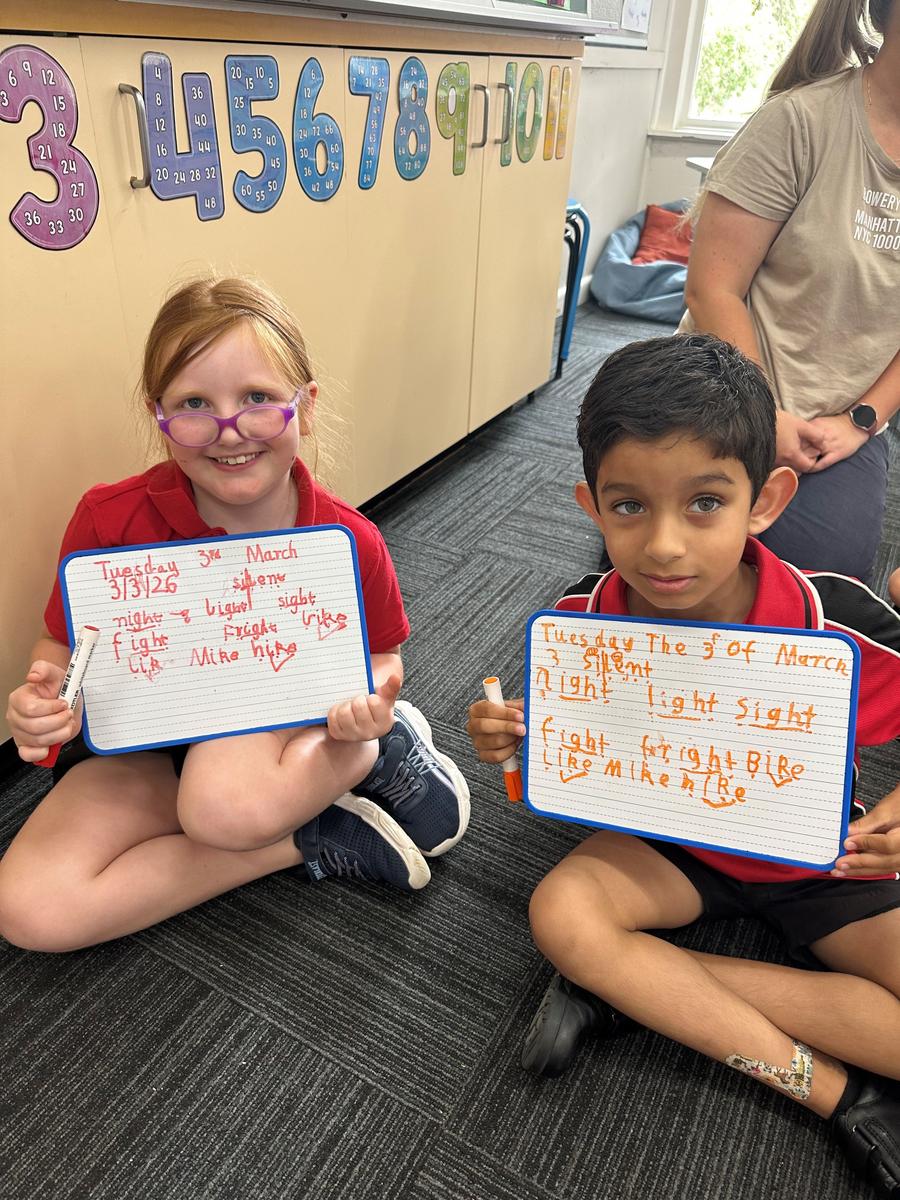 3 4 5 6 7 8 9 10 11
6 9 12
15
18
21
24
27
36 33 30
4
8
12
16
20 24 28 32
36
40
44
48
20 15 10
5
25
30 35 40
45
50
60 55
OWERY
MANHATT
NYC 1000
Tuesday 3rd March
3/3/26 silent
night light sight
fight fright bike
lik Mike hike
Tuesday The 3r Of March
3 Silent
night light sight
fight fright BiKe
liKe miKe hiKe